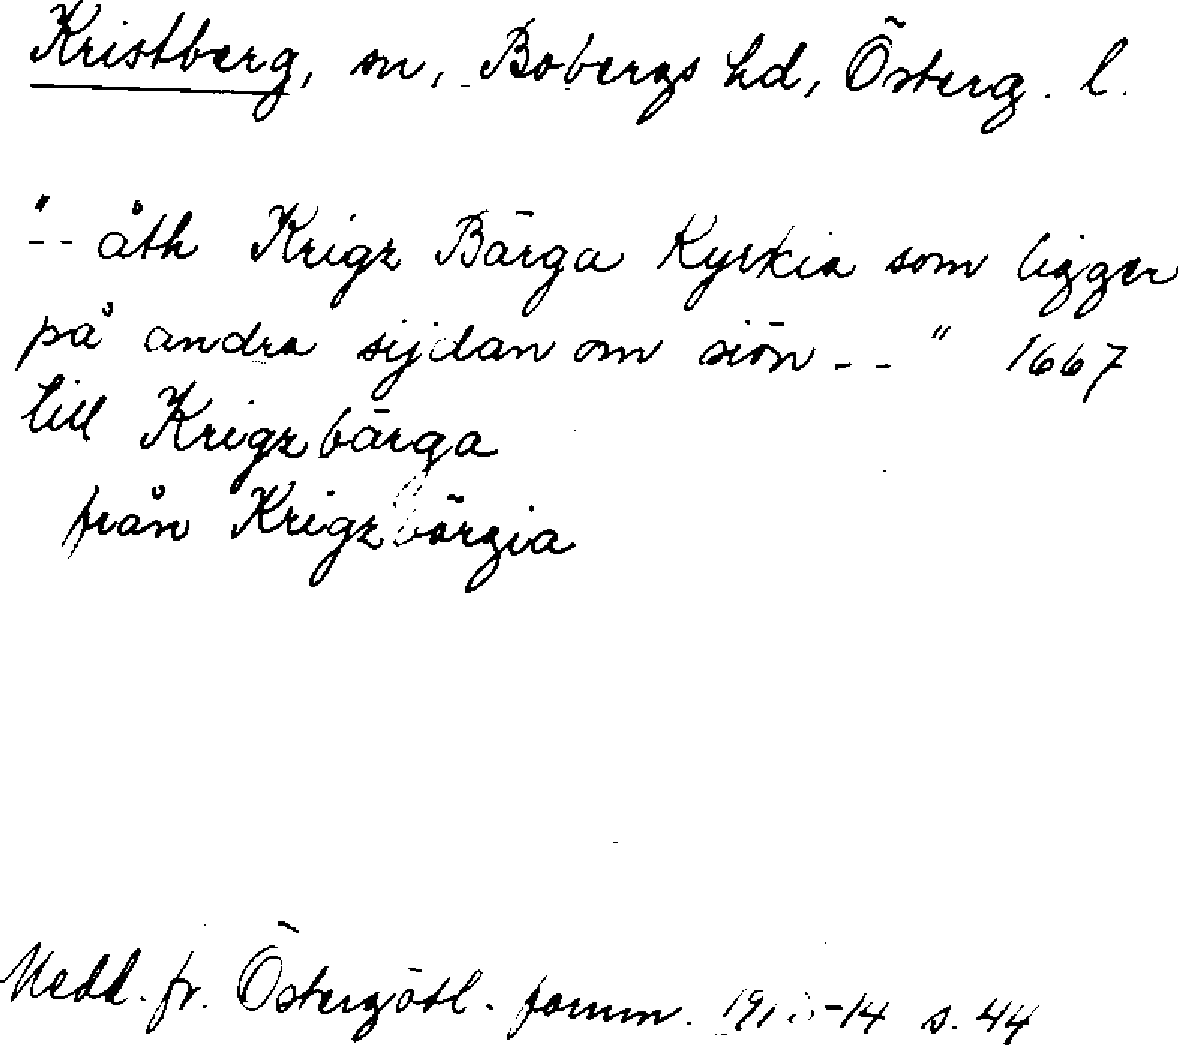 Kristberg, sn, Bobergs hd, Österg. l.
"-- åth Krigz Bärga Kyrkia som ligger
på andra sijdan om siön --" 1667
till Krigzbärga
från Krigzbärgia
Medd. fr. Östergötl. fornm. s. 44